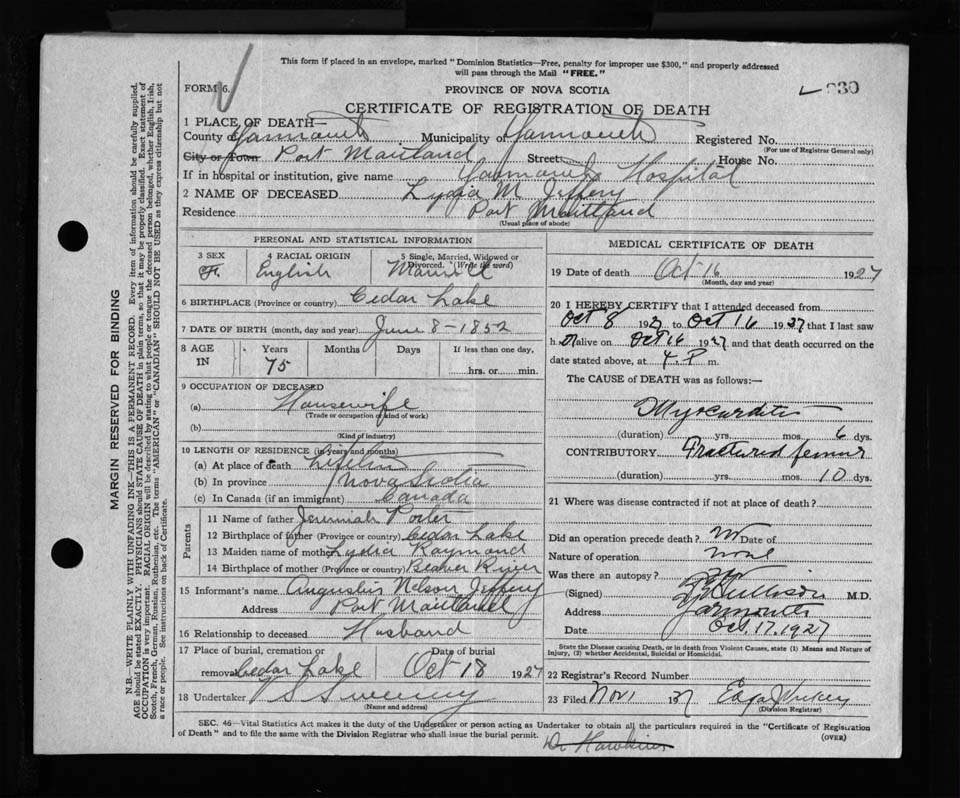 This form if placed in an envelope, marked "Dominion Statistics—Free, penalty for improper use $300," and properly addressed
will pass through the Mail "FREE."
FORM 6.
PROVINCE OF NOVA SCOTIA
CERTIFICATE OF REGISTRATION OF DEATH
1 PLACE OF DEATH—
County of Yarmouth Municipality of Yarmouth Registered No.
(For use of Registrar General only)
City or Town Port Maitland Street House No.
If in hospital or institution, give name Yarmouth Hospital
2 NAME OF DECEASED Lydia M. Jeffery
Residence Port Maitland
(Usual place of abode)
PERSONAL AND STATISTICAL INFORMATION
3 SEX F. 4 RACIAL ORIGIN English 5 Single, Married, Widowed or Divorced. (Write the word) Married
6 BIRTHPLACE (Province or country) Cedar Lake
7 DATE OF BIRTH (month, day and year) June 8 – 1852
8 AGE IN Years 75 Months Days If less than one day, hrs. or min.
9 OCCUPATION OF DECEASED
(a) Housewife
(Trade or occupation or kind of work)
(b)
(Kind of industry)
10 LENGTH OF RESIDENCE (in years and months)
(a) At place of death Lifetime
(b) In province Nova Scotia
(c) In Canada (if an immigrant) Canada
Parents
11 Name of father Jeremiah Porter
12 Birthplace of father (Province or country) Cedar Lake
13 Maiden name of mother Lydia Raymond
14 Birthplace of mother (Province or country) Beaver River
15 Informant's name Augustus Nelson Jeffery
Address Port Maitland
16 Relationship to deceased Husband
17 Place of burial, cremation or removal Cedar Lake Date of burial Oct 18 1927
18 Undertaker V S Sweeny
(Name and address)
MEDICAL CERTIFICATE OF DEATH
19 Date of death Oct 16 1927
(Month, day and year)
20 I HEREBY CERTIFY that I attended deceased from
Oct 8 1927 to Oct 16 1927 that I last saw
h er alive on Oct 16 1927 and that death occurred on the
date stated above, at 4 P m.
The CAUSE of DEATH was as follows:—
Myocarditis
(duration) yrs. mos. 6 dys.
CONTRIBUTORY Fractured femur
(duration) yrs. mos. 10 dys.
21 Where was disease contracted if not at place of death?
Did an operation precede death? No Date of
Nature of operation None
Was there an autopsy? No
(Signed) M.D.
Address Yarmouth
Date Oct. 17, 1927
State the Disease causing Death, or in death from Violent Causes, state (1) Means and Nature of
Injury, (2) whether Accidental, Suicidal or Homicidal.
22 Registrar's Record Number
23 Filed Nov 1
(Division Registrar)
SEC. 46—Vital Statistics Act makes it the duty of the Undertaker or person acting as Undertaker to obtain all the particulars required in the "Certificate of Registration
of Death" and to file the same with the Division Registrar who shall issue the burial permit.
(OVER)
Dr Hawkins
MARGIN RESERVED FOR BINDING
N.B.—WRITE PLAINLY WITH UNFADING INK—THIS IS A PERMANENT RECORD. Every item of information should be carefully supplied.
AGE should be stated EXACTLY. PHYSICIANS should STATE CAUSE OF DEATH in plain terms, so that it may be properly classified. Exact statement of
OCCUPATION is very important. RACIAL ORIGIN will be described by stating to what people or tongue the deceased person belonged, whether English, Irish,
Scotch, French, German, Russian, Ruthenian, etc. The terms "AMERICAN" or "CANADIAN" SHOULD NOT BE USED as they express citizenship but not
a race or people. See instructions on back of Certificate.